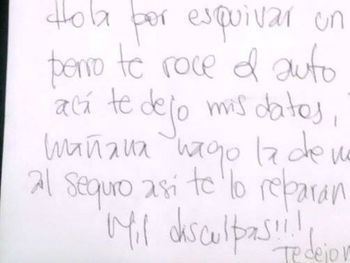 Hola por esquivar un
perro te roce el auto
acá te dejo mis datos,
mañana hago la de
al seguro asi te lo reparan
Mil disculpas!!!
Te dejo